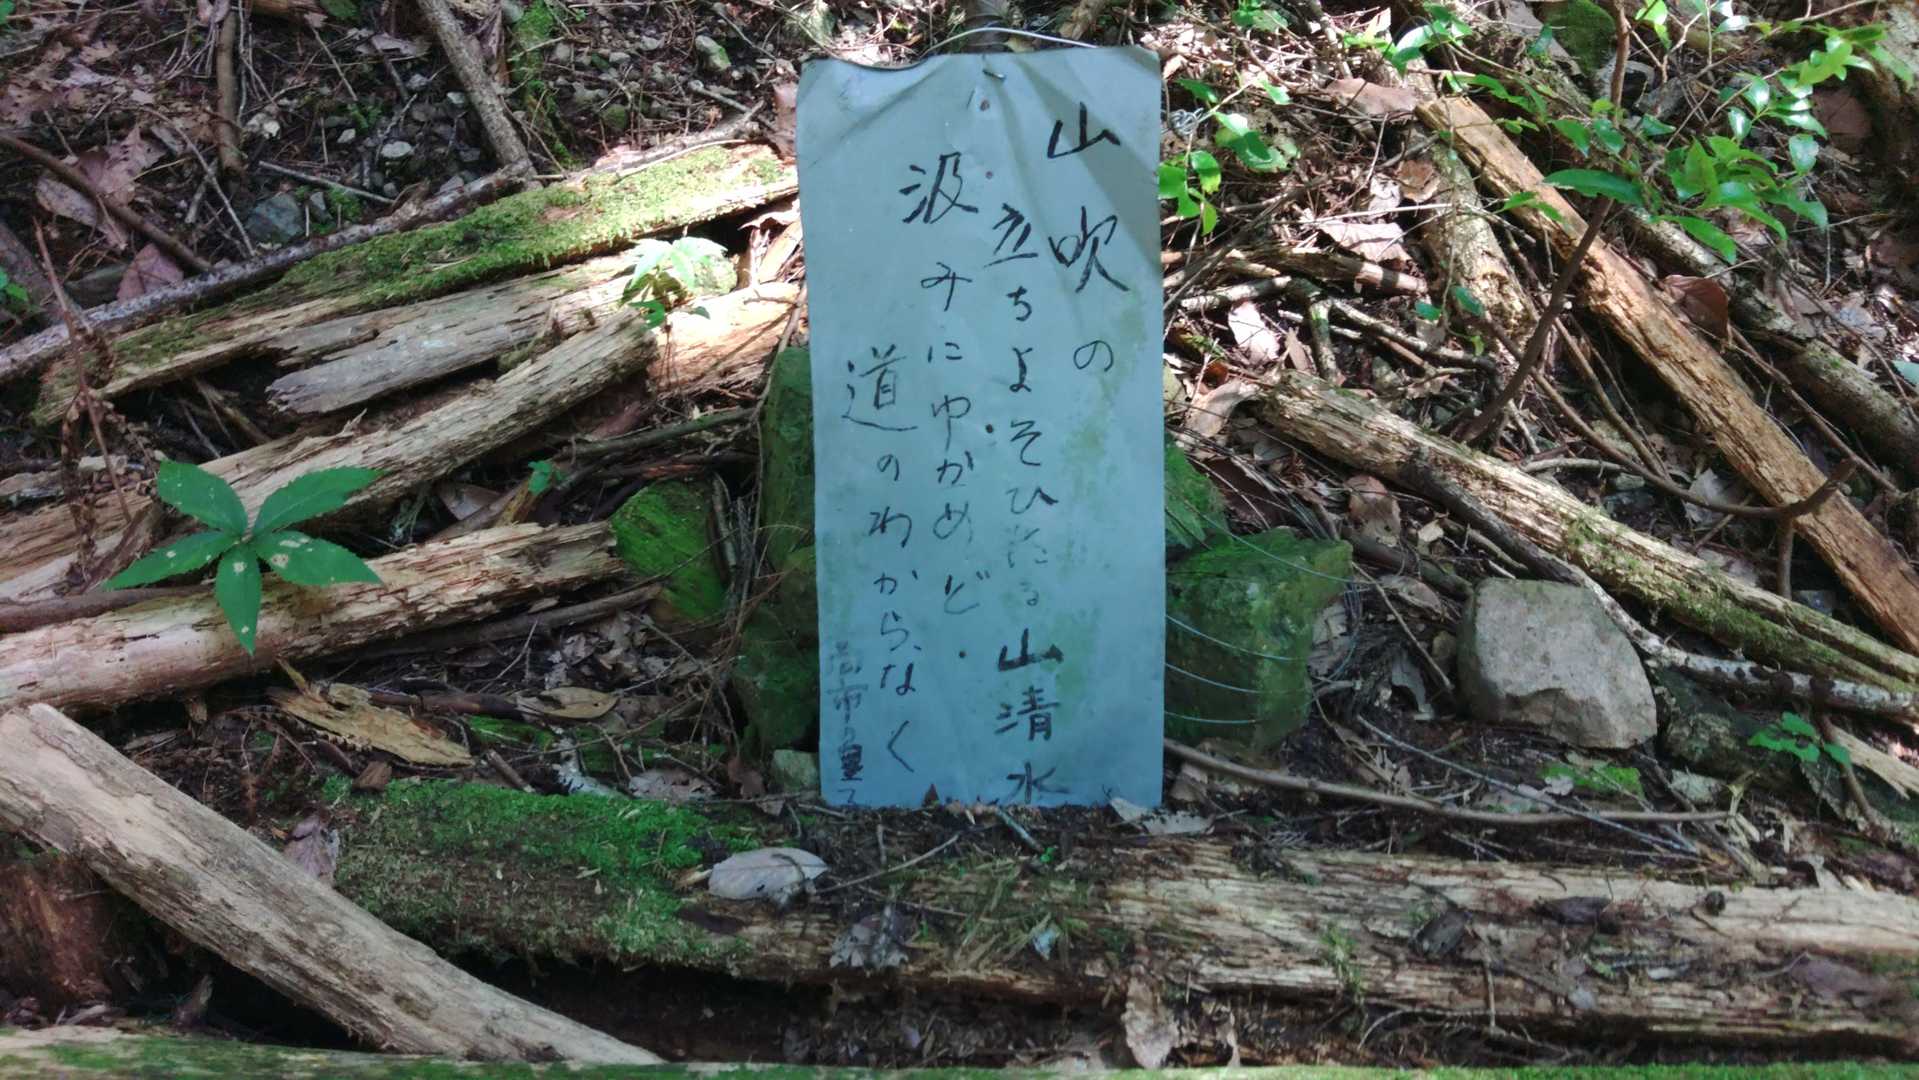 山吹の
立ちよそひたる山清水
汲みにゆかめど
道のわからなく
高市の皇子